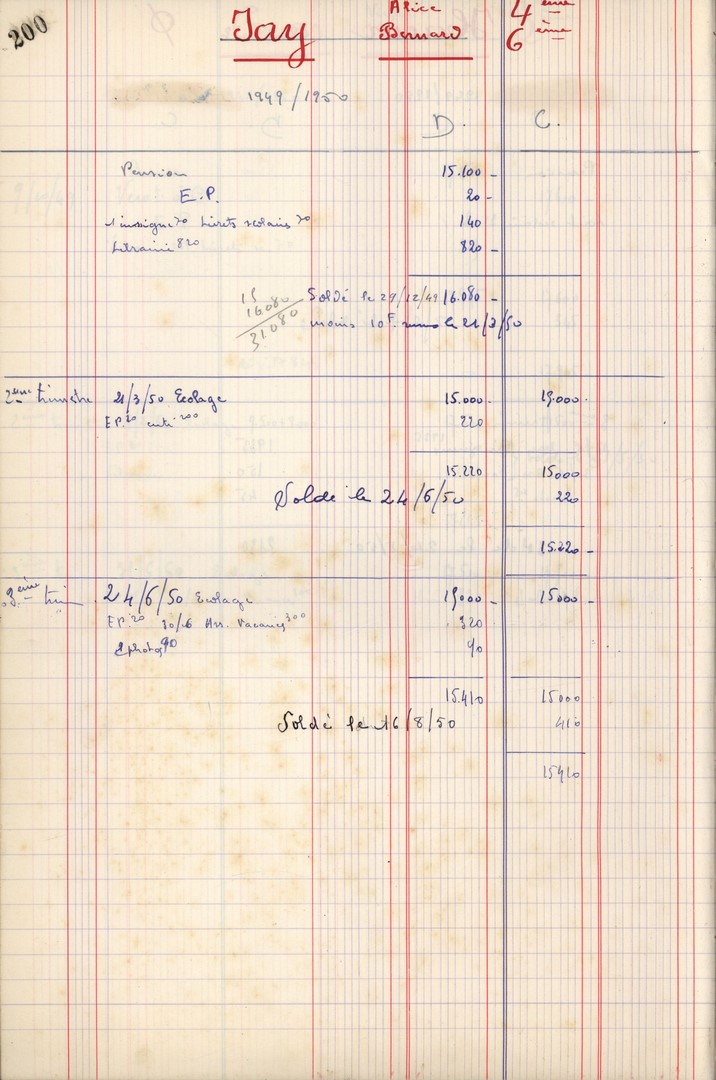 200
Jay Alice 4 ème
Bernard 6 ème
1949/1950
D. C.
Pension 15.100 -
E.P. 20 -
1 insigne 70 Livrets scolaires 70 140
Librairie 820 820 -
Soldé le 29/12/49 16.080 -
moins 10 F. le 21/3/50
15
16080
31080
2ème trimestre 21/3/50 Ecolage 15.000 - 15.000 -
E.P. 20 200 220
15.220 15000
Soldé le 24/6/50 220
15.220 -
3ème tri 24/6/50 Ecolage 15000 - 15000 -
E.P. 20 30/6 Ass. Vacances 300 320
2 photos 90 90
15.410 15000
Soldé le 16/8/50 410
15410